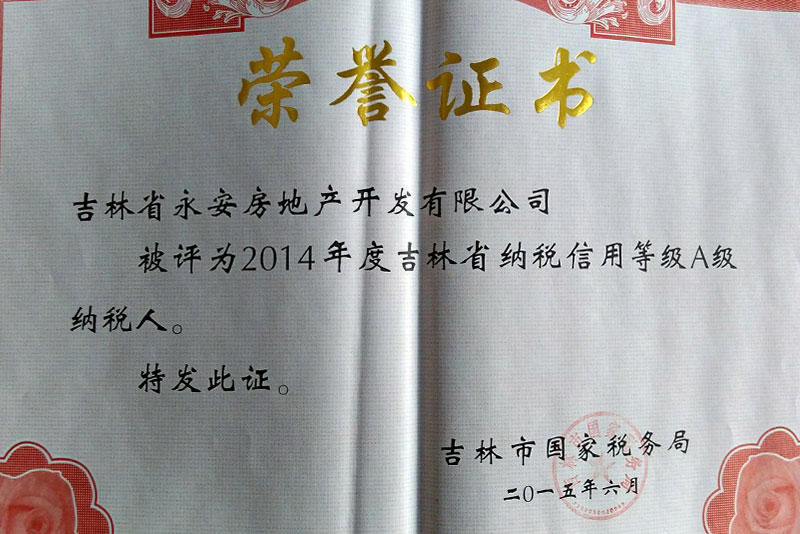 荣誉证书
吉林省永安房地产开发有限公司
被评为2014年度吉林省纳税信用等级A级
纳税人。
特发此证。
吉林市国家税务局
二〇一五年六月